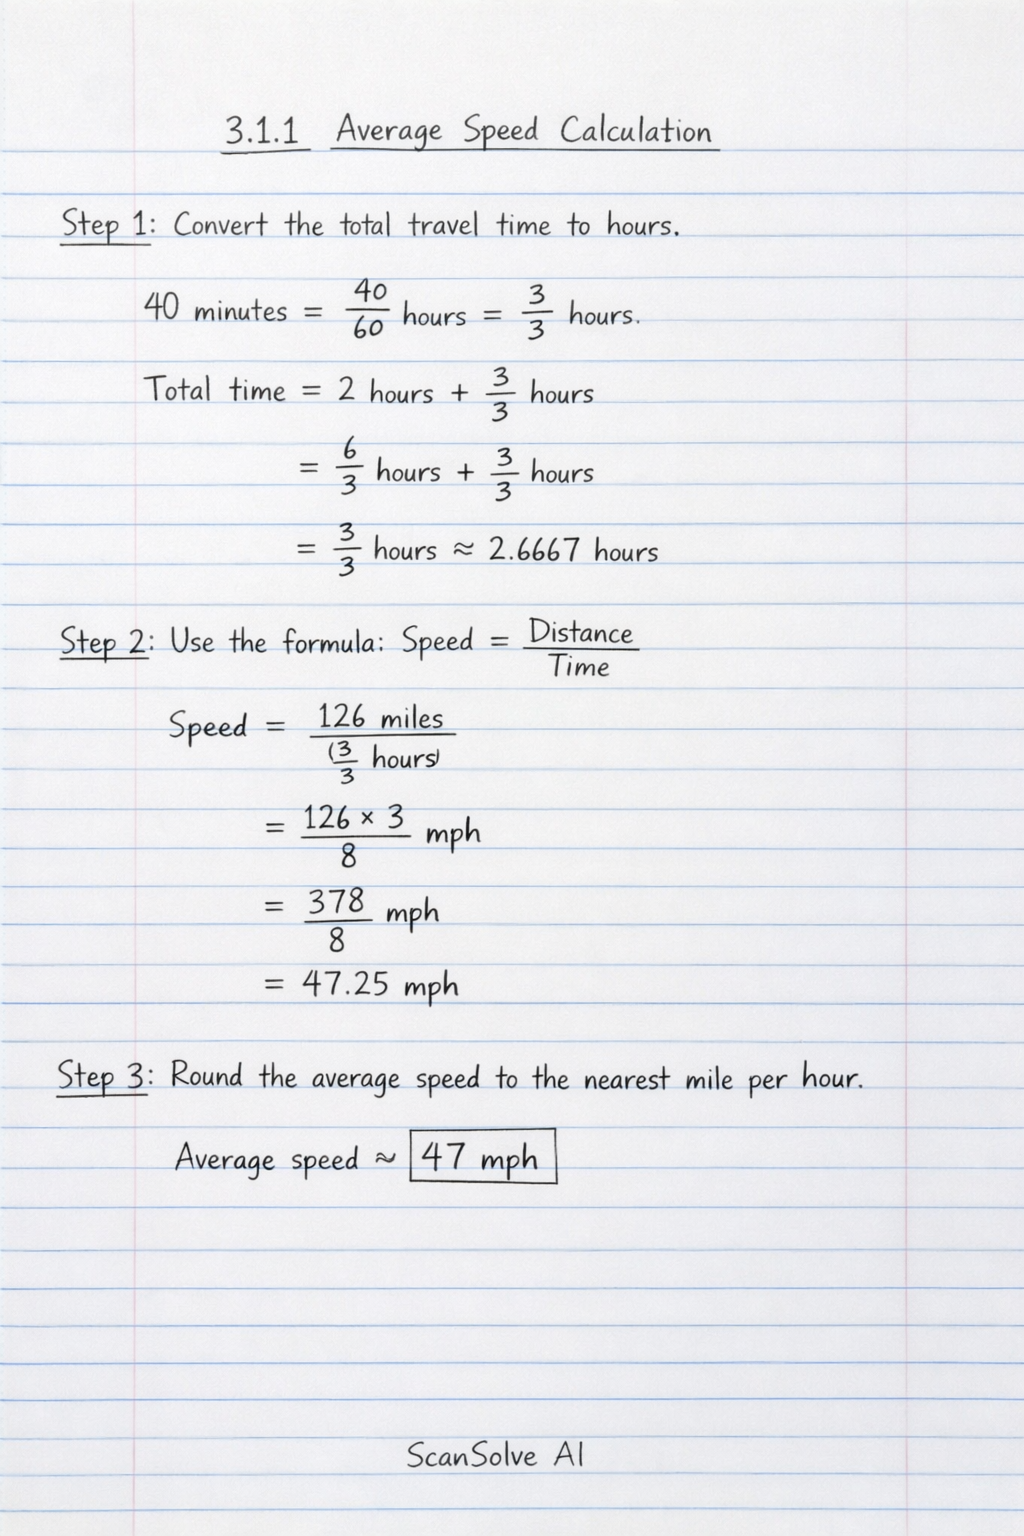 3.1.1 Average Speed Calculation
Step 1: Convert the total travel time to hours.
40 minutes = 40/60 hours = 3/3 hours.
Total time = 2 hours + 3/3 hours
= 6/3 hours + 3/3 hours
= 3/3 hours ≈ 2.6667 hours
Step 2: Use the formula: Speed = Distance/Time
Speed = 126 miles/(3/3 hours)
= 126 × 3/8 mph
= 378/8 mph
= 47.25 mph
Step 3: Round the average speed to the nearest mile per hour.
Average speed ≈ 47 mph
ScanSolve AI